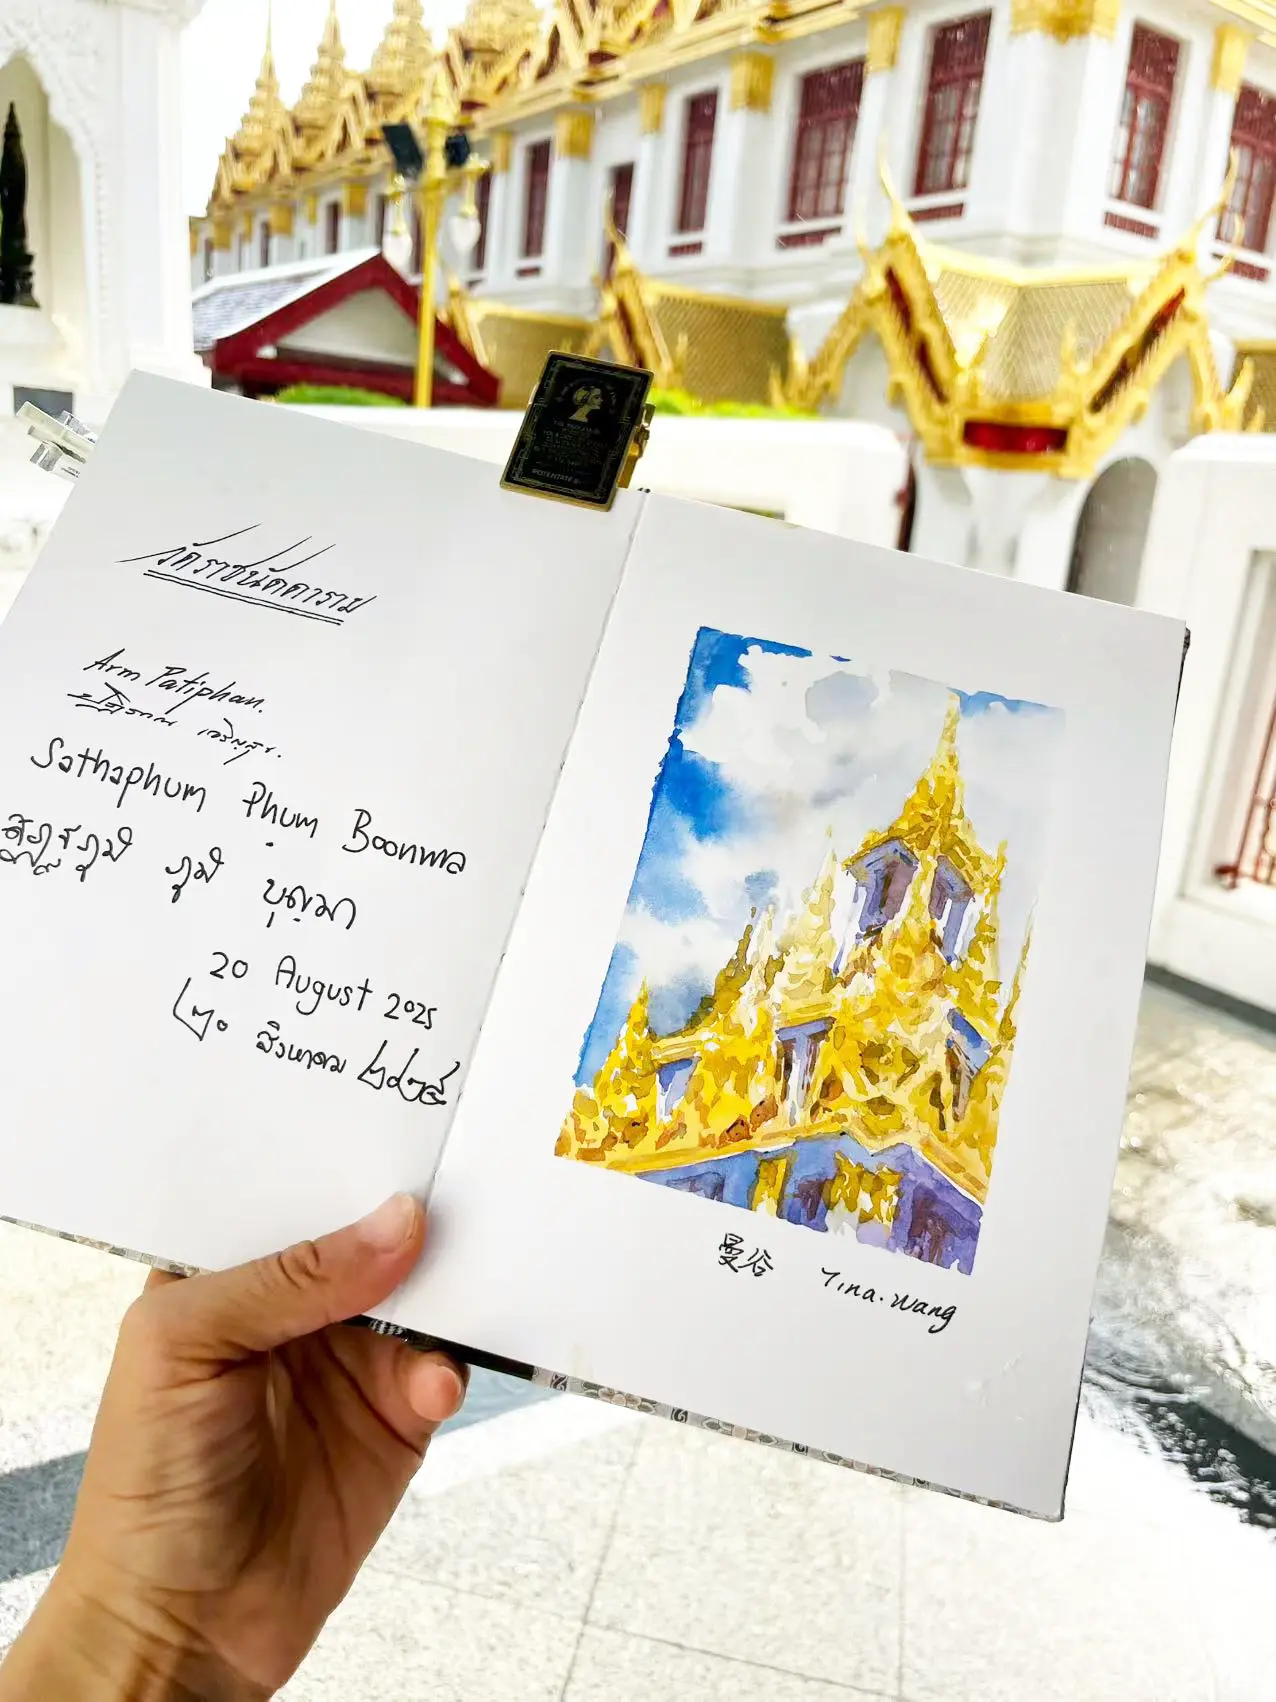 วัดราชนัดดาราม
Arm Patiphan.
ปฏิภาณ เจริญสุข.
Sathaphum Phum Boonma
ภูมิ บุญมา
20 August 2025
๒๐ สิงหาคม ๒๕๖๘
曼谷 Tina.Wang